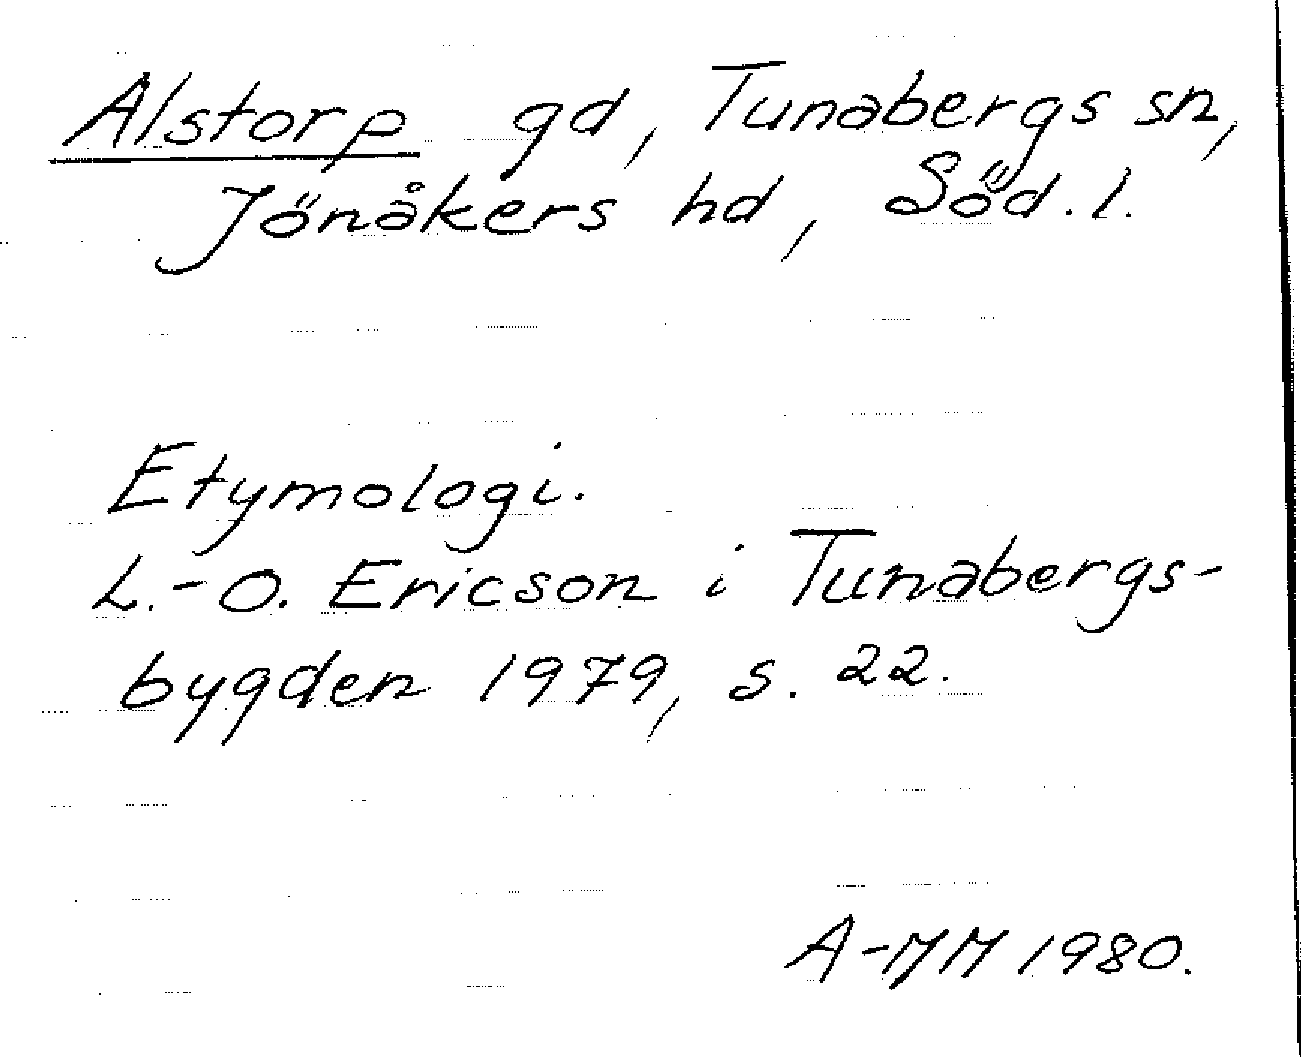 Alstorp gd, Tunabergs sn,
Jönåkers hd, Söd. l.
Etymologi.
L.-O. Ericson i Tunabergs-
bygden 1979, s. 22.
A-MM 1980.